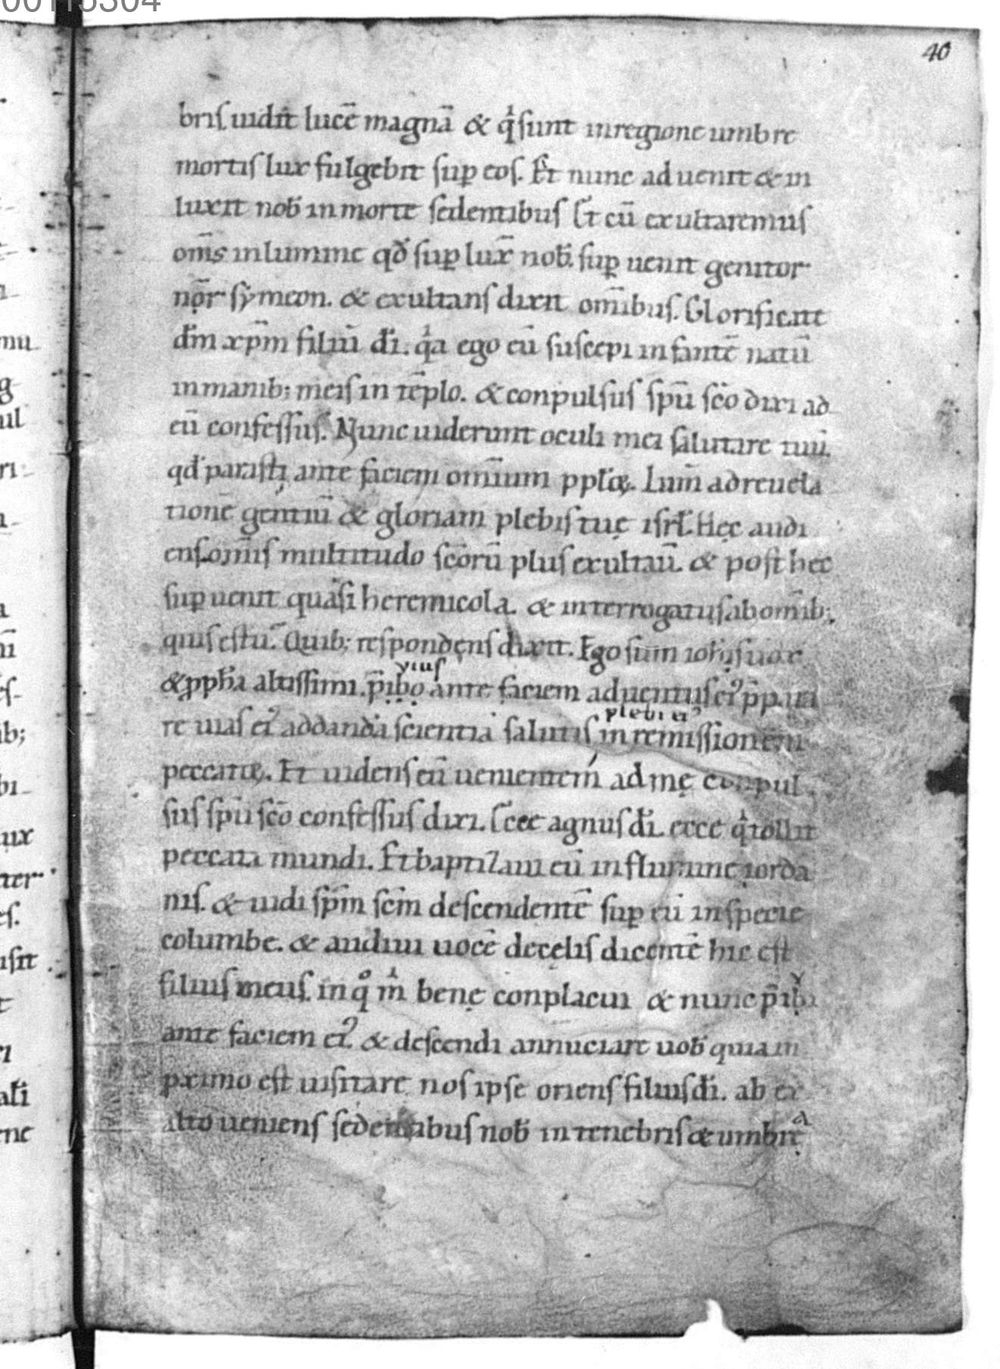 40
bris uidit lucē magnā & q̇ sunt in regione umbre
mortis lux fulgebit suꝑ eos. Et nunc aduenit & in
luxit nob̄ in morte sedentibus Et cū exultaremus
om̄s in lumine qđ suꝑ lux̄ nob̄. suꝑ uenit genitor
nr̄ symeon. & exultans dixit om̄ibus. Glorificate
dm̄ xpm̄ filiū dī. q̇a ego eū suscepi infantē natū
in manib; meis in tēplo. & conpulsus spū scō dixi ad
eū confessus. Nunc uiderunt oculi mei salutare tuū.
qđ parasti ante faciem omīum ppl̄oꝝ. Lum̄ ad reuela
tionē gentiū & gloriam plebis tuę isrl̄. Hęc audi
ens om̄is multitudo scōrū plus exultau̅. & post hec
suꝑuenit quasi heremicola. & interrogatus ab om̄ib;
quis est tu. Quib; respondens dixit. Ego sum ioh̄is uox
& ꝓph̄a altissimi. p̄ibo ante faciem aduentus eiꝰ p̄para
uius
re uias eiꝰ ad dandā scientiā salutis in remissionem
plebi eiꝰ
peccatoꝝ. Et uidens eū uenientem ad mę conpul
sus spū scō confessus dixi. Ecce agnus dī. ecce q̇ tollit
peccata mundi. Et baptizaui eū in flumine iorda
nis. & uidi spm̄ scm̄ descendentē suꝑ eū in specie
columbe. & audiui uocē de cęlis dicentē hic est
filius meus. in qͦ ṁ bene conplacui & nunc p̄ibi
ante faciem eiꝰ & descendi annuciare uob̄ quia in
pximo est uisitare nos ipse oriens filius dī. ab ex
alto ueniens sedentibus nob̄ in tenebris & umbre